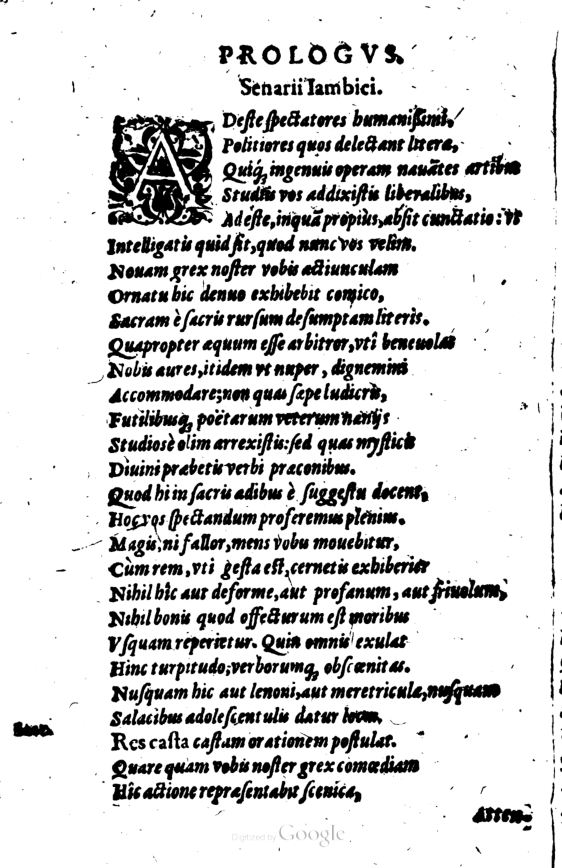 PROLOGVS.
Senarii Iambici.
ADeste spectatores humanissimi,
Politiores quos delectant literæ,
Quiq́; ingenuis operam nauātes artibus
Studiis vos addixistis liberalibus,
Adeste, inquā propius, absit cunctatio: vt
Intelligatis quid sit, quod nunc vos velim.
Nouam grex noster vobis actiunculam
Ornatu hic denuo exhibebit comico,
Sacram è sacris rursum desumptam literis.
Quapropter æquum esse arbitror, vti beneuolas
Nobis aures, itidem vt nuper, dignemini
Accommodare; non quas sæpe ludicris,
Futilibusq́; poëtarum veterum nænijs
Studiosè olim arrexistis: sed quas mysticis
Diuini præbetis verbi præconibus.
Quod hi in sacris ædibus è suggestu docent,
Hoc vos spectandum proferemus plenius.
Magis, ni fallor, mens vobis mouebitur,
Cùm rem, vti gesta est, cernetis exhiberier
Nihil hîc aut deforme, aut profanum, aut friuolum,
Nihil bonis quod offecturum est moribus
Vsquam reperietur. Quin omnis exulat
Hinc turpitudo, verborumq́; obscœnitas.
Nusquam hic aut lenoni, aut meretriculæ, nusquam
Salacibus adolescentulis datur locus.
Res casta castam orationem postulat.
Quare quam vobis noster grex comœdiam
Hîc actione repræsentabit scenica,
Atten-
Digitized by Google